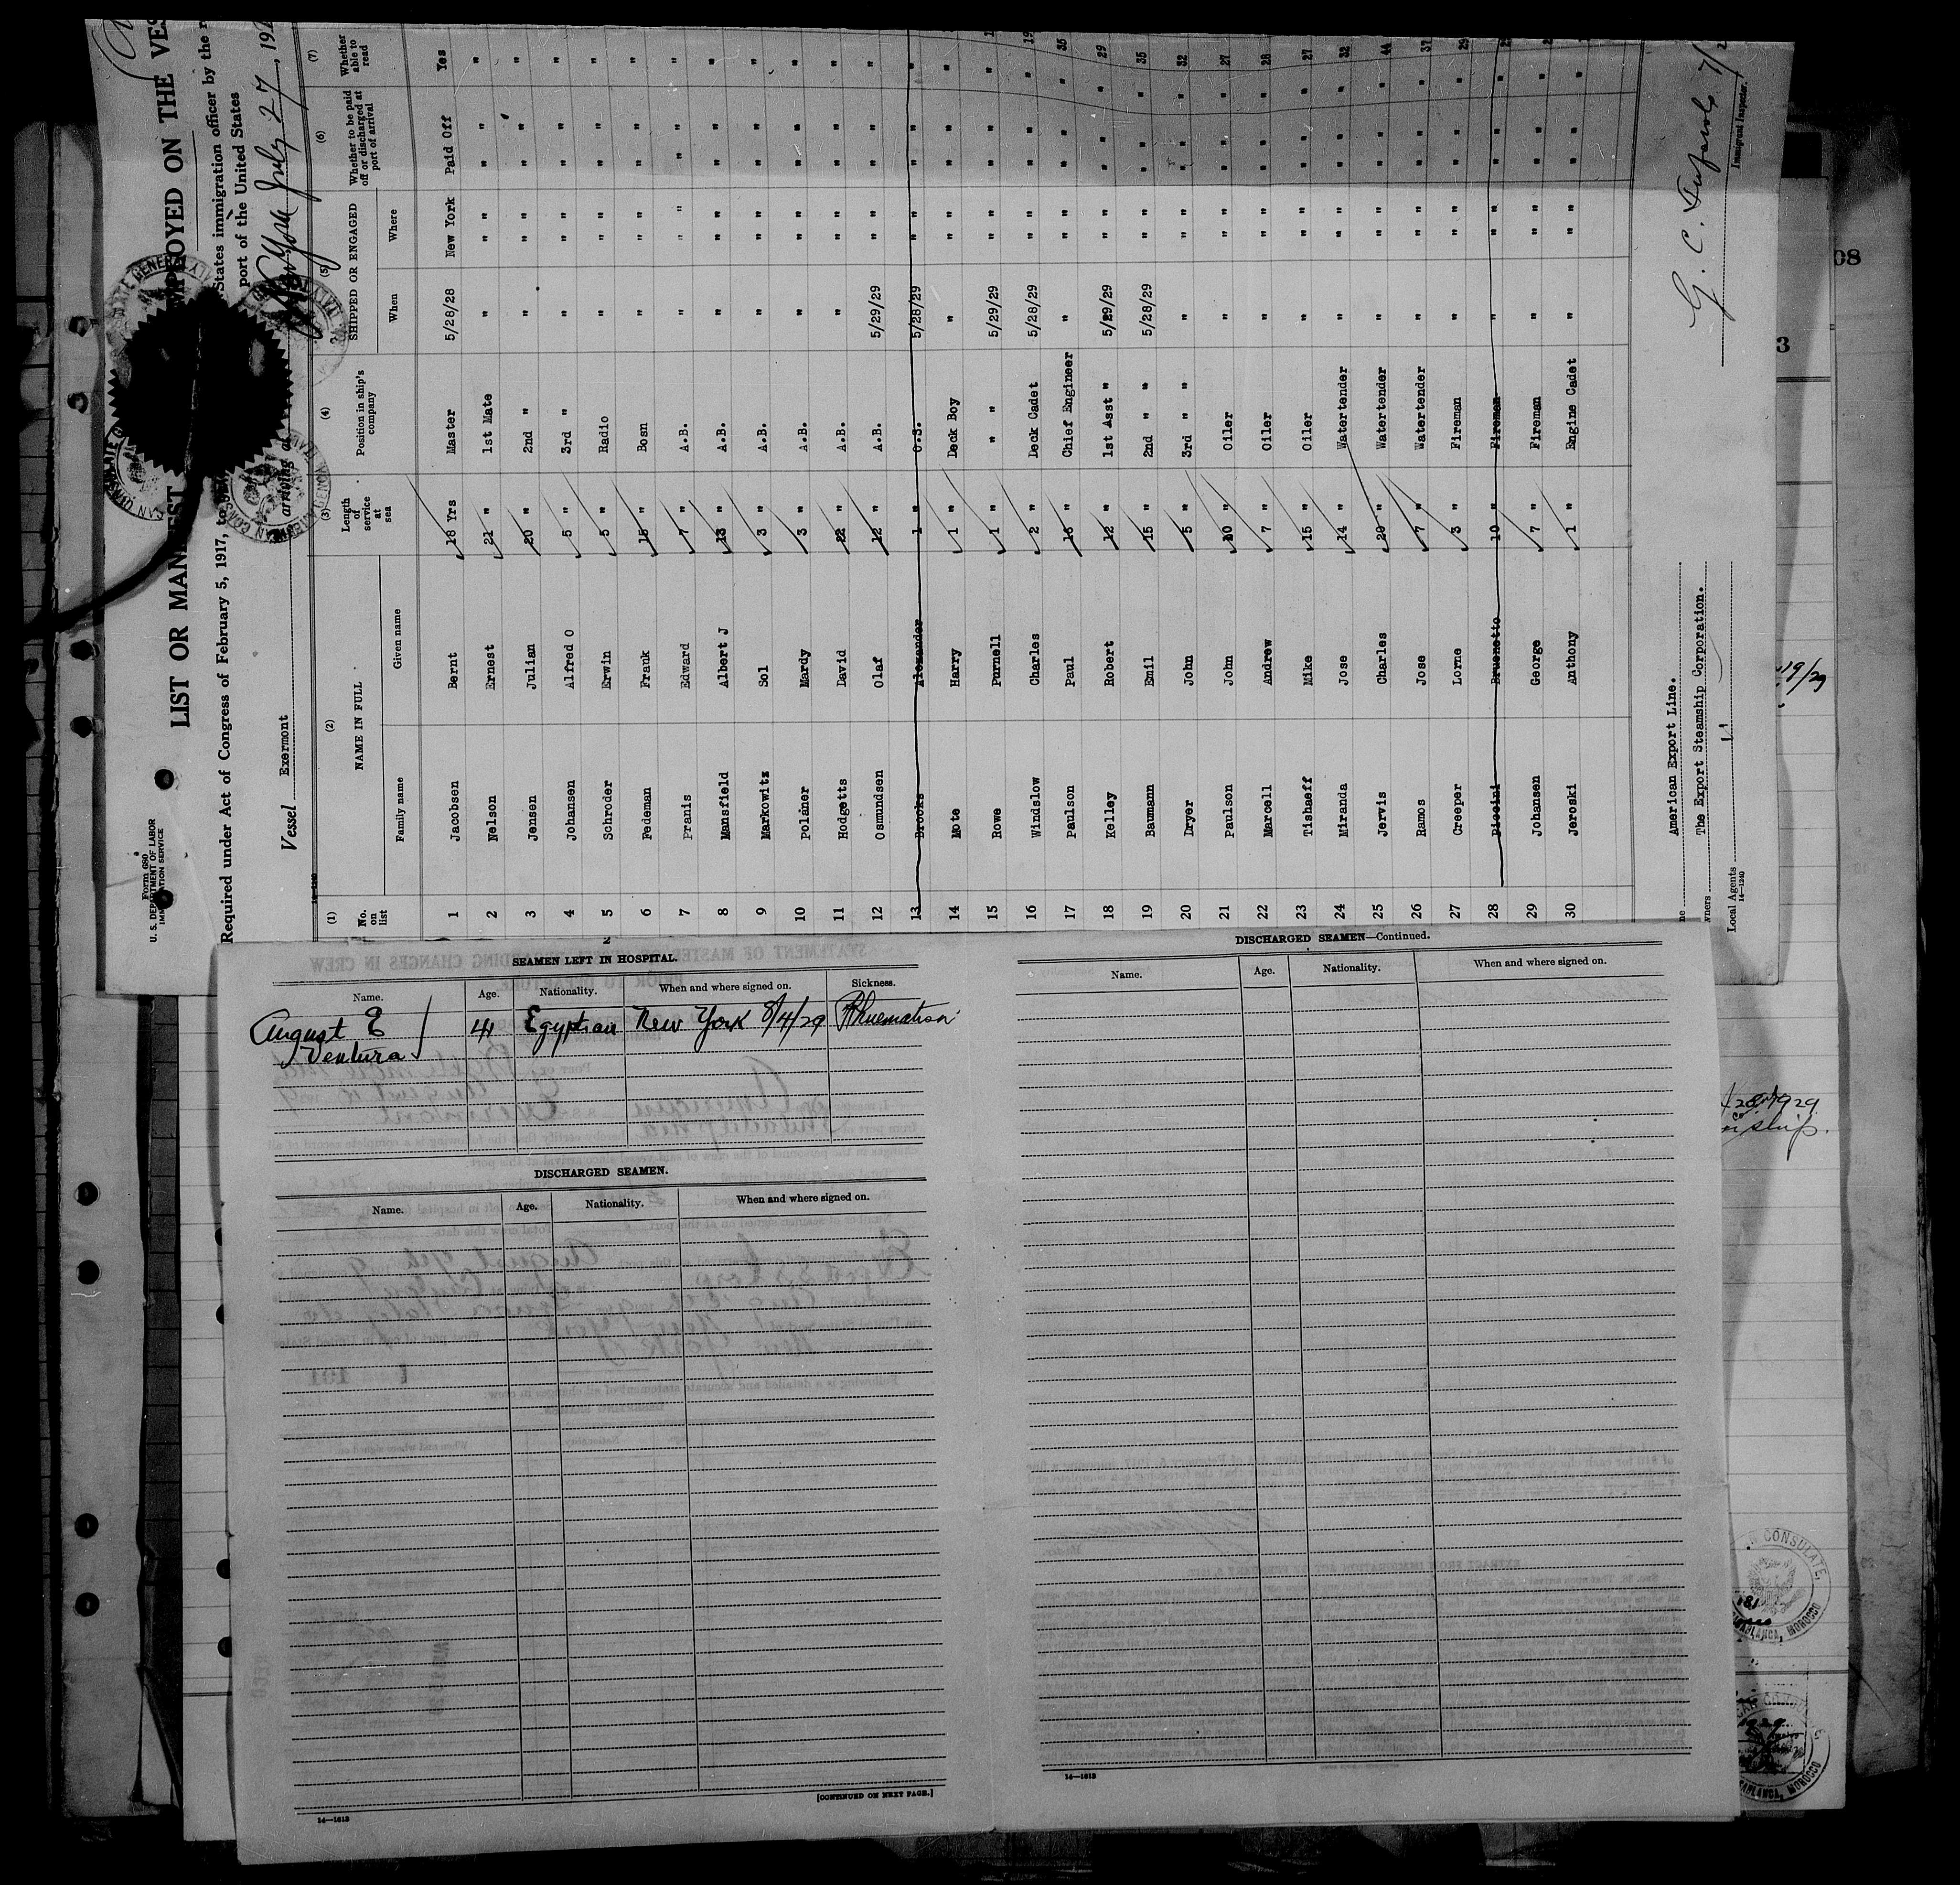 Form 680
U. S. DEPARTMENT OF LABOR
IMMIGRATION SERVICE
LIST OR MANIFEST EMPLOYED ON THE VES
Required under Act of Congress of February 5, 1917, to States immigration officer by the
port of the United States
Vessel Exermont arriving at New York July 27, 192
(1) (2) (3) (4) (5) (6) (7)
No. on list NAME IN FULL Length of service at sea Position in ship's company SHIPPED OR ENGAGED Whether to be paid off or discharged at port of arrival Whether able to read
Family name Given name When Where
1 Jacobsen Bernt 18 Yrs Master 5/28/28 New York Paid Off Yes
2 Nelson Ernest 21 " 1st Mate " " " " " "
3 Jensen Julian 20 " 2nd " " " " " " "
4 Johansen Alfred O 5 " 3rd " " " " " " "
5 Schroder Erwin 5 " Radio " " " " " "
6 Fedeman Frank 15 " Bosn " " " " " "
7 Pranis Edward 7 " A.B. " " " " " "
8 Mansfield Albert J 13 " A.B. " " " " " "
9 Markowitz Sol 3 " A.B. " " " " " "
10 Polsner Mardy 3 " A.B. " " " " " "
11 Hodgetts David 22 " A.B. " " " " " "
12 Osmundsen Olaf 12 " A.B. 5/29/29 " " " " "
13 Brooks Alexander 1 " O.S. 5/28/29 " " " " "
14 Mote Harry 1 " Deck Boy " " " " " "
15 Rowe Purnell 1 " " " 5/29/29 " " " " "
16 Windslow Charles 2 " Deck Cadet 5/28/29 " " " " " 19
17 Paulson Paul 16 " Chief Engineer " " " " " " 35
18 Kelley Robert 12 " 1st Asst " 5/29/29 " " " " " 29
19 Baumann Emil 15 " 2nd " " 5/28/29 " " " " " 35
20 Dryer John 5 " 3rd " " " " " " " " 32
21 Paulson John 10 " Oiler " " " " " " 27
22 Marcell Andrew 7 " Oiler " " " " " " 28
23 Tishaeff Mike 15 " Oiler " " " " " " 27
24 Miranda Jose 14 " Watertender " " " " " " 32
25 Jervis Charles 20 " Watertender " " " " " " 44
26 Ramos Jose 7 " Watertender " " " " " " 37
27 Creeper Lorne 3 " Fireman " " " " " " 29
28 Piccini Bruenetto 10 " Fireman " " " " " "
29 Johansen George 7 " Fireman " " " " " "
30 Jeroski Anthony 1 " Engine Cadet " " " " " "
American Export Line.
The Export Steamship Corporation.
Local Agents
14—1240
G. C.
Immigrant Inspector.
SEAMEN LEFT IN HOSPITAL.
Name. Age. Nationality. When and where signed on. Sickness.
August E Ventura 41 Egyptian New York 8/4/29 Rhuematism
DISCHARGED SEAMEN.
Name. Age. Nationality. When and where signed on.
[CONTINUED ON NEXT PAGE.]
14—1613
DISCHARGED SEAMEN—Continued.
Name. Age. Nationality. When and where signed on.
14—1613
08
3
19/29
ship.
CONSULATE
CASABLANCA, MOROCCO
CASABLANCA, MOROCCO